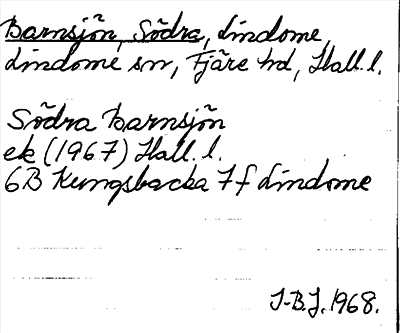 Barnsjön, Södra, Lindome,
Lindome sn, Fjäre hd, Hall. l.
Södra Barnsjön
ek (1967) Hall. l.
6B Kungsbacka 7f Lindome
I-B.J. 1968.